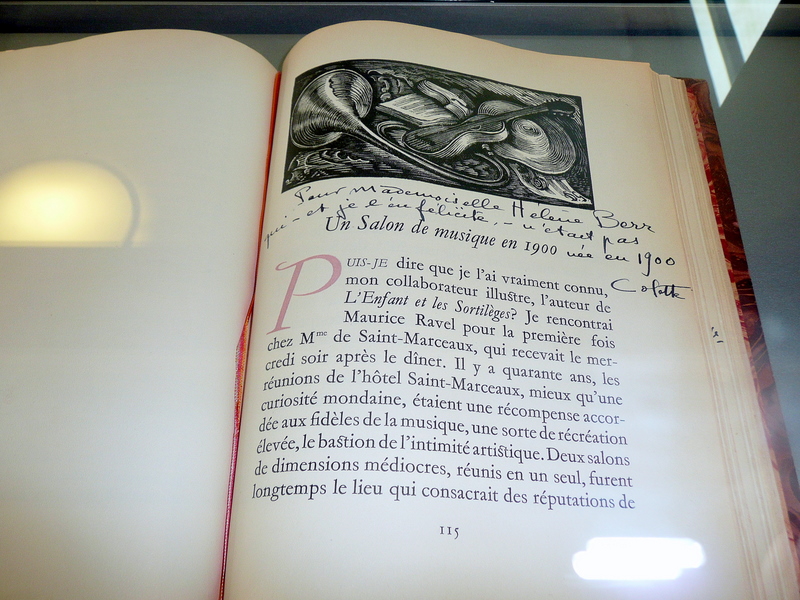 Pour Mademoiselle Hélène Berr
qui - et je l'en félicite, - n'était pas
née en 1900
Colette
Un Salon de musique en 1900
PUIS-JE dire que je l'ai vraiment connu,
mon collaborateur illustre, l'auteur de
L'Enfant et les Sortilèges? Je rencontrai
Maurice Ravel pour la première fois
chez Mme de Saint-Marceaux, qui recevait le mer-
credi soir après le dîner. Il y a quarante ans, les
réunions de l'hôtel Saint-Marceaux, mieux qu'une
curiosité mondaine, étaient une récompense accor-
dée aux fidèles de la musique, une sorte de récréation
élevée, le bastion de l'intimité artistique. Deux salons
de dimensions médiocres, réunis en un seul, furent
longtemps le lieu qui consacrait des réputations de
115